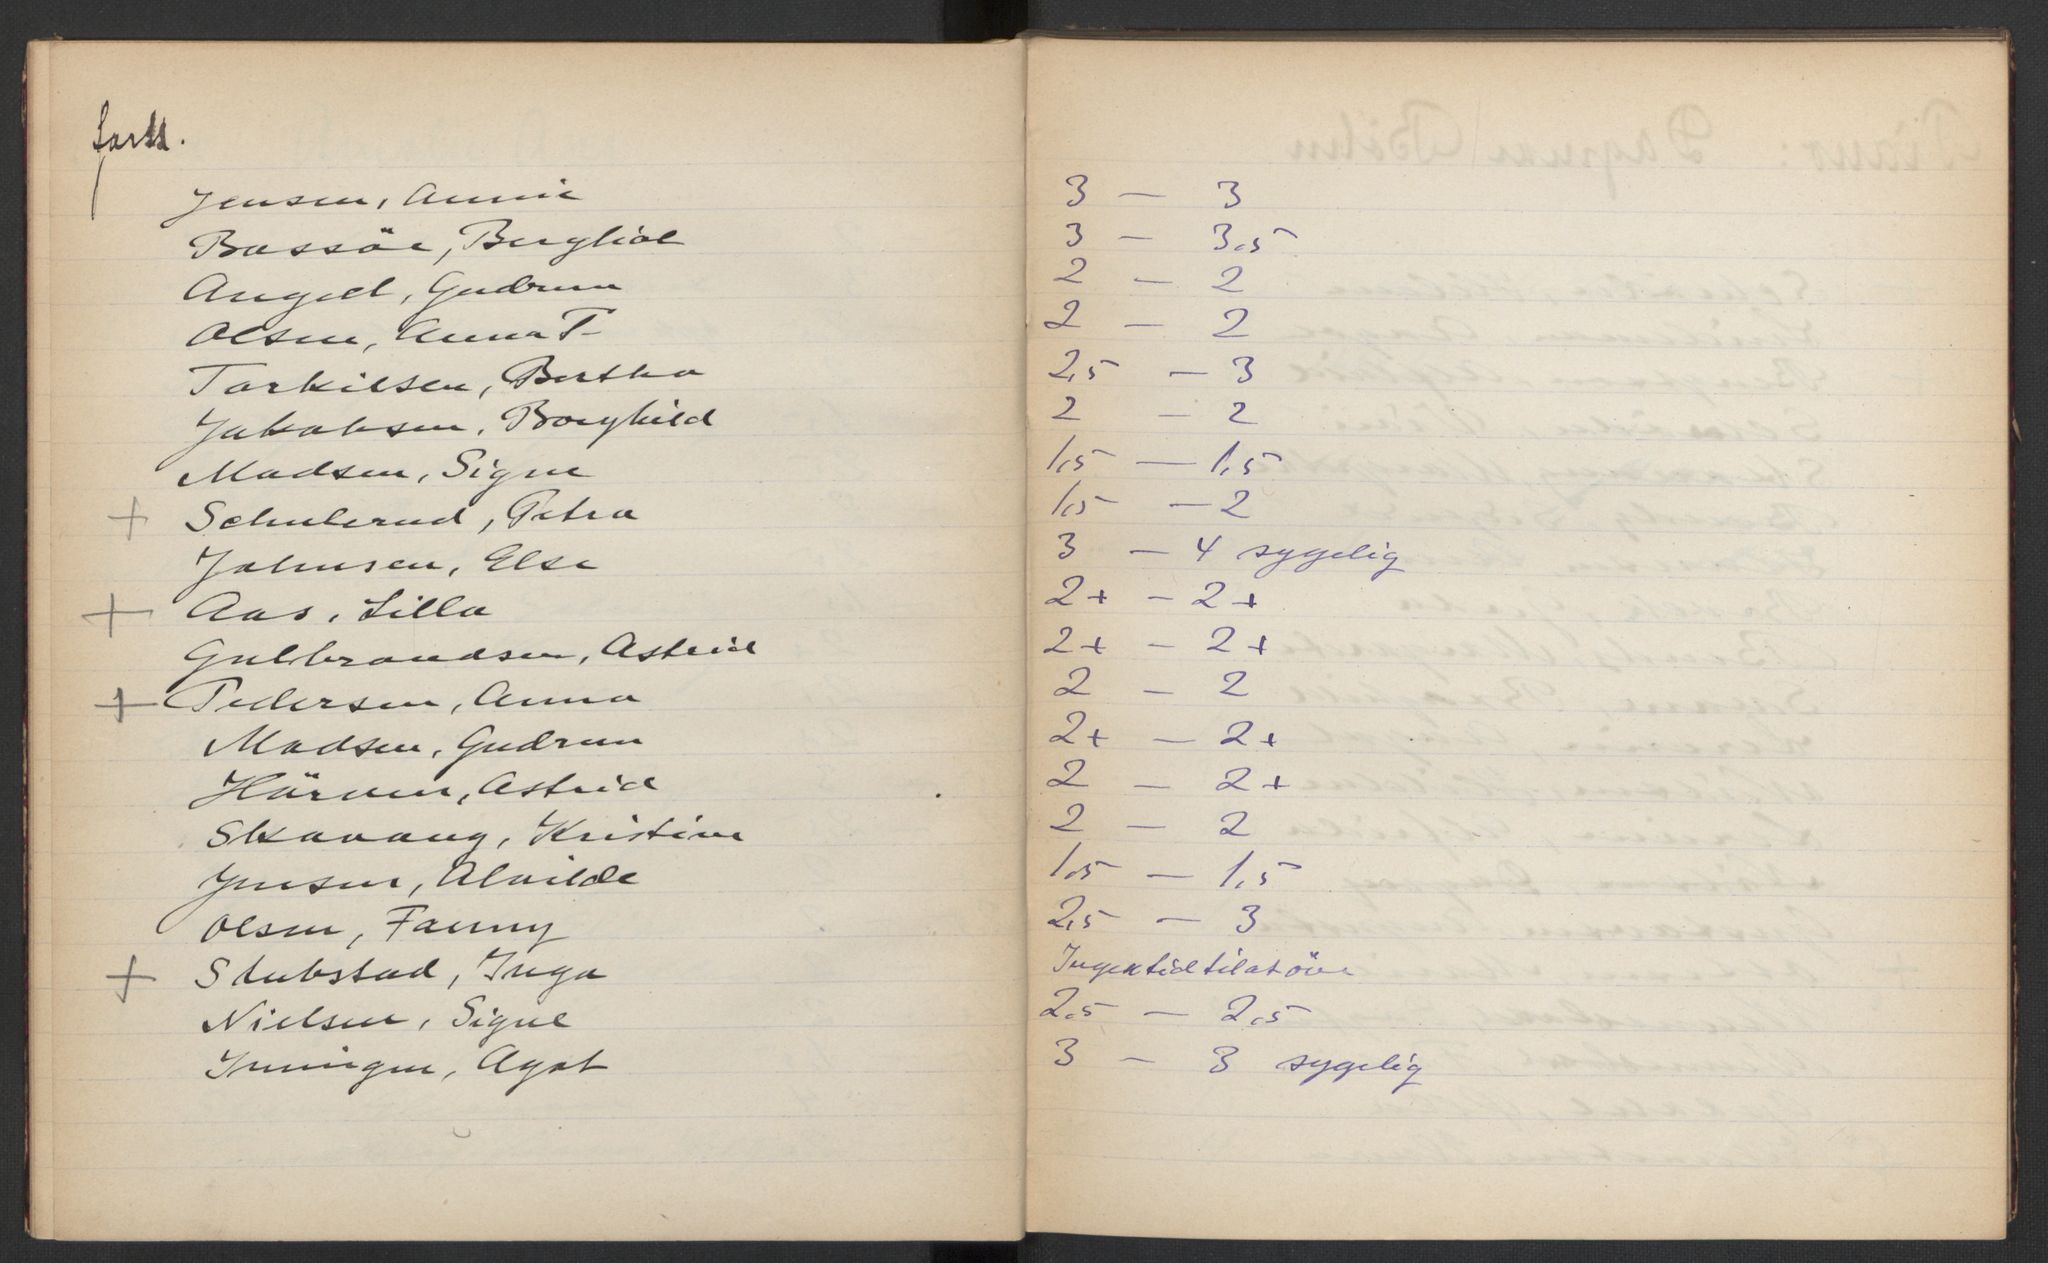 forts.
Jensen, Annie 3 — 3
Bassöe, Bergliot 3 — 3,5
Angell, Gudrun 2 — 2
Olsen, Anna T. 2 — 2
Torkilsen, Bertha 2,5 — 3
Jakobsen, Borghild 2 — 2
Madsen, Signe 1,5 — 1,5
+ Schulerud, Petra 1,5 — 2
Johnsen, Else 3 — 4 sygelig
+ Aas, Lilla 2+ — 2+
Gulbrandsen, Astrid 2+ — 2+
+ Pedersen, Anna 2 — 2
Madsen, Gudrun 2+ — 2+
Astrid 2 — 2+
Skavang, Kristine 2 — 2
Jensen, Alvilde 1,5 — 1,5
Olsen, Fanny 2,5 — 3
+ Stubstad, Inga Ingen tid til at öve
Nielsen, Signe 2,5 — 2,5
Agot 3 — 3 sygelig